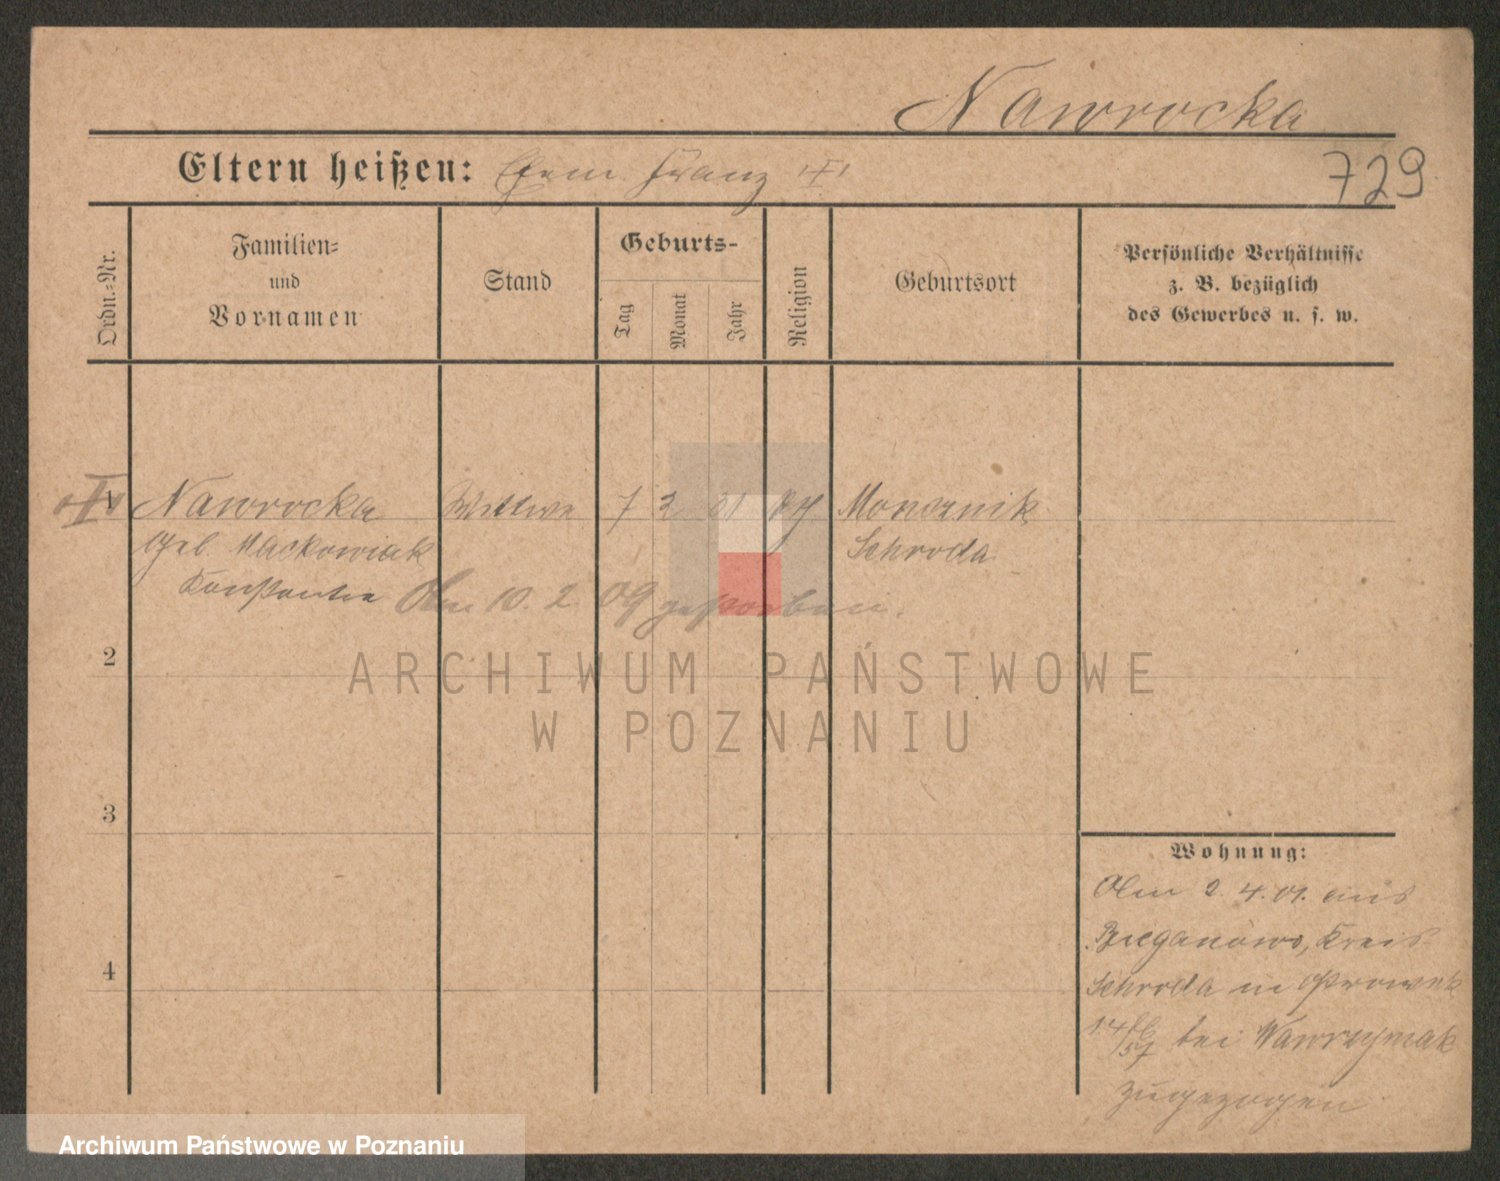 Nawrocka
Eltern heißen: Ehem. Franz
729
Ordn.-Nr.
Familien-
und
Vornamen
Stand
Geburts-
Tag
Monat
Jahr
Religion
Geburtsort
Persönliche Verhältnisse
z. B. bezüglich
des Gewerbes u. s. w.
1 Nawrocka Wittwe 7 2 31
Schroda
geb. Mackowiak
Konstantia
Am 10. 2. 09 gestorben.
2
ARCHIWUM PAŃSTWOWE
W POZNANIU
3
4
Wohnung:
Am 2. 4. 01. aus
Bieganowo, Kreis
Schroda in
bei Wawrzyniak
zugezogen
Archiwum Państwowe w Poznaniu